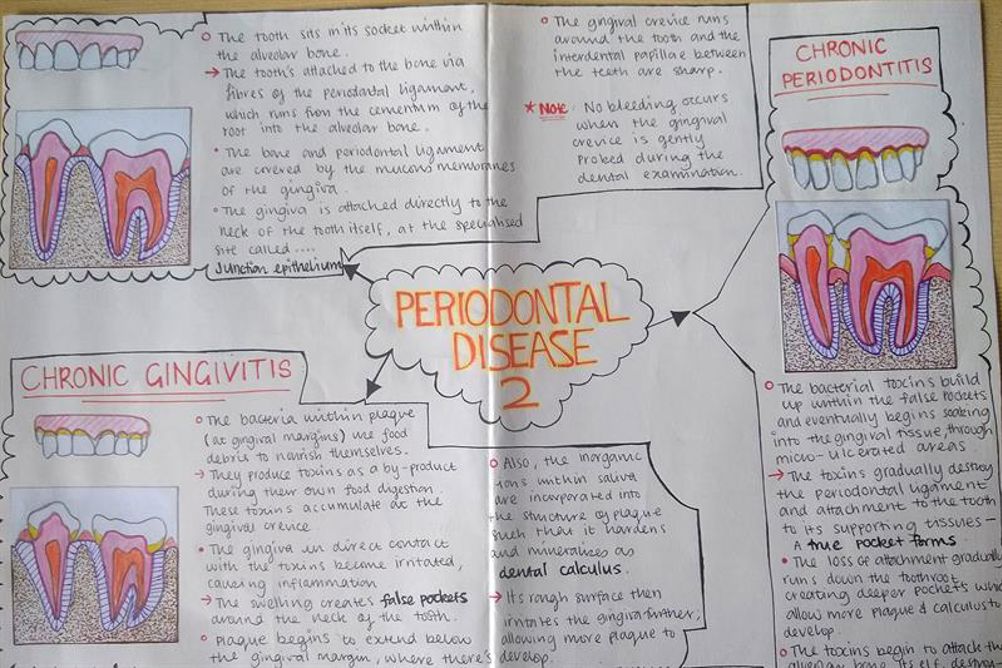 The tooth sits in its socket within
the alveolar bone.
→ The tooth's attached to the bone via
fibres of the periodontal ligament,
which runs from the cementum of the
root into the alveolar bone.
• The bone and periodontal ligament
are covered by the mucous membranes
of the gingiva.
• The gingiva is attached directly to the
neck of the tooth itself, at the specialised
site called ....
Junction epithelium
The gingival crevice runs
around the tooth and the
interdental papillae between
the teeth are sharp.
★ Note: No bleeding occurs
when the gingival
crevice is gently
probed during the
dental examination.
PERIODONTAL
DISEASE
2
CHRONIC GINGIVITIS
The bacteria within plaque
(at gingival margins) use food
debris to nourish themselves.
→ They produce toxins as a by-product
during their own food digestion.
These toxins accumulate at the
gingival crevice.
• The gingiva in direct contact
with the toxins become irritated,
causing inflammation
→ The swelling creates false pockets
around the neck of the tooth.
Plaque begins to extend below
the gingival margin, where there's
Also, the inorganic
ions within saliva
are incorporated into
the structure of plaque
such that it hardens
and mineralises as
dental calculus.
→ Its rough surface then
irritates the gingiva further,
allowing more plaque to
develop.
CHRONIC
PERIODONTITIS
The bacterial toxins build
up within the false pockets
and eventually begins soaking
into the gingival tissue, through
micro-ulcerated areas
→ The toxins gradually destroy
the periodontal ligament
and attachment to the tooth
to its supporting tissues —
A true pocket forms
• The loss of attachment gradually
runs down the tooth root,
creating deeper pockets which
allow more plaque & calculus to
develop.
The toxins begin to attack the
alveolar bone